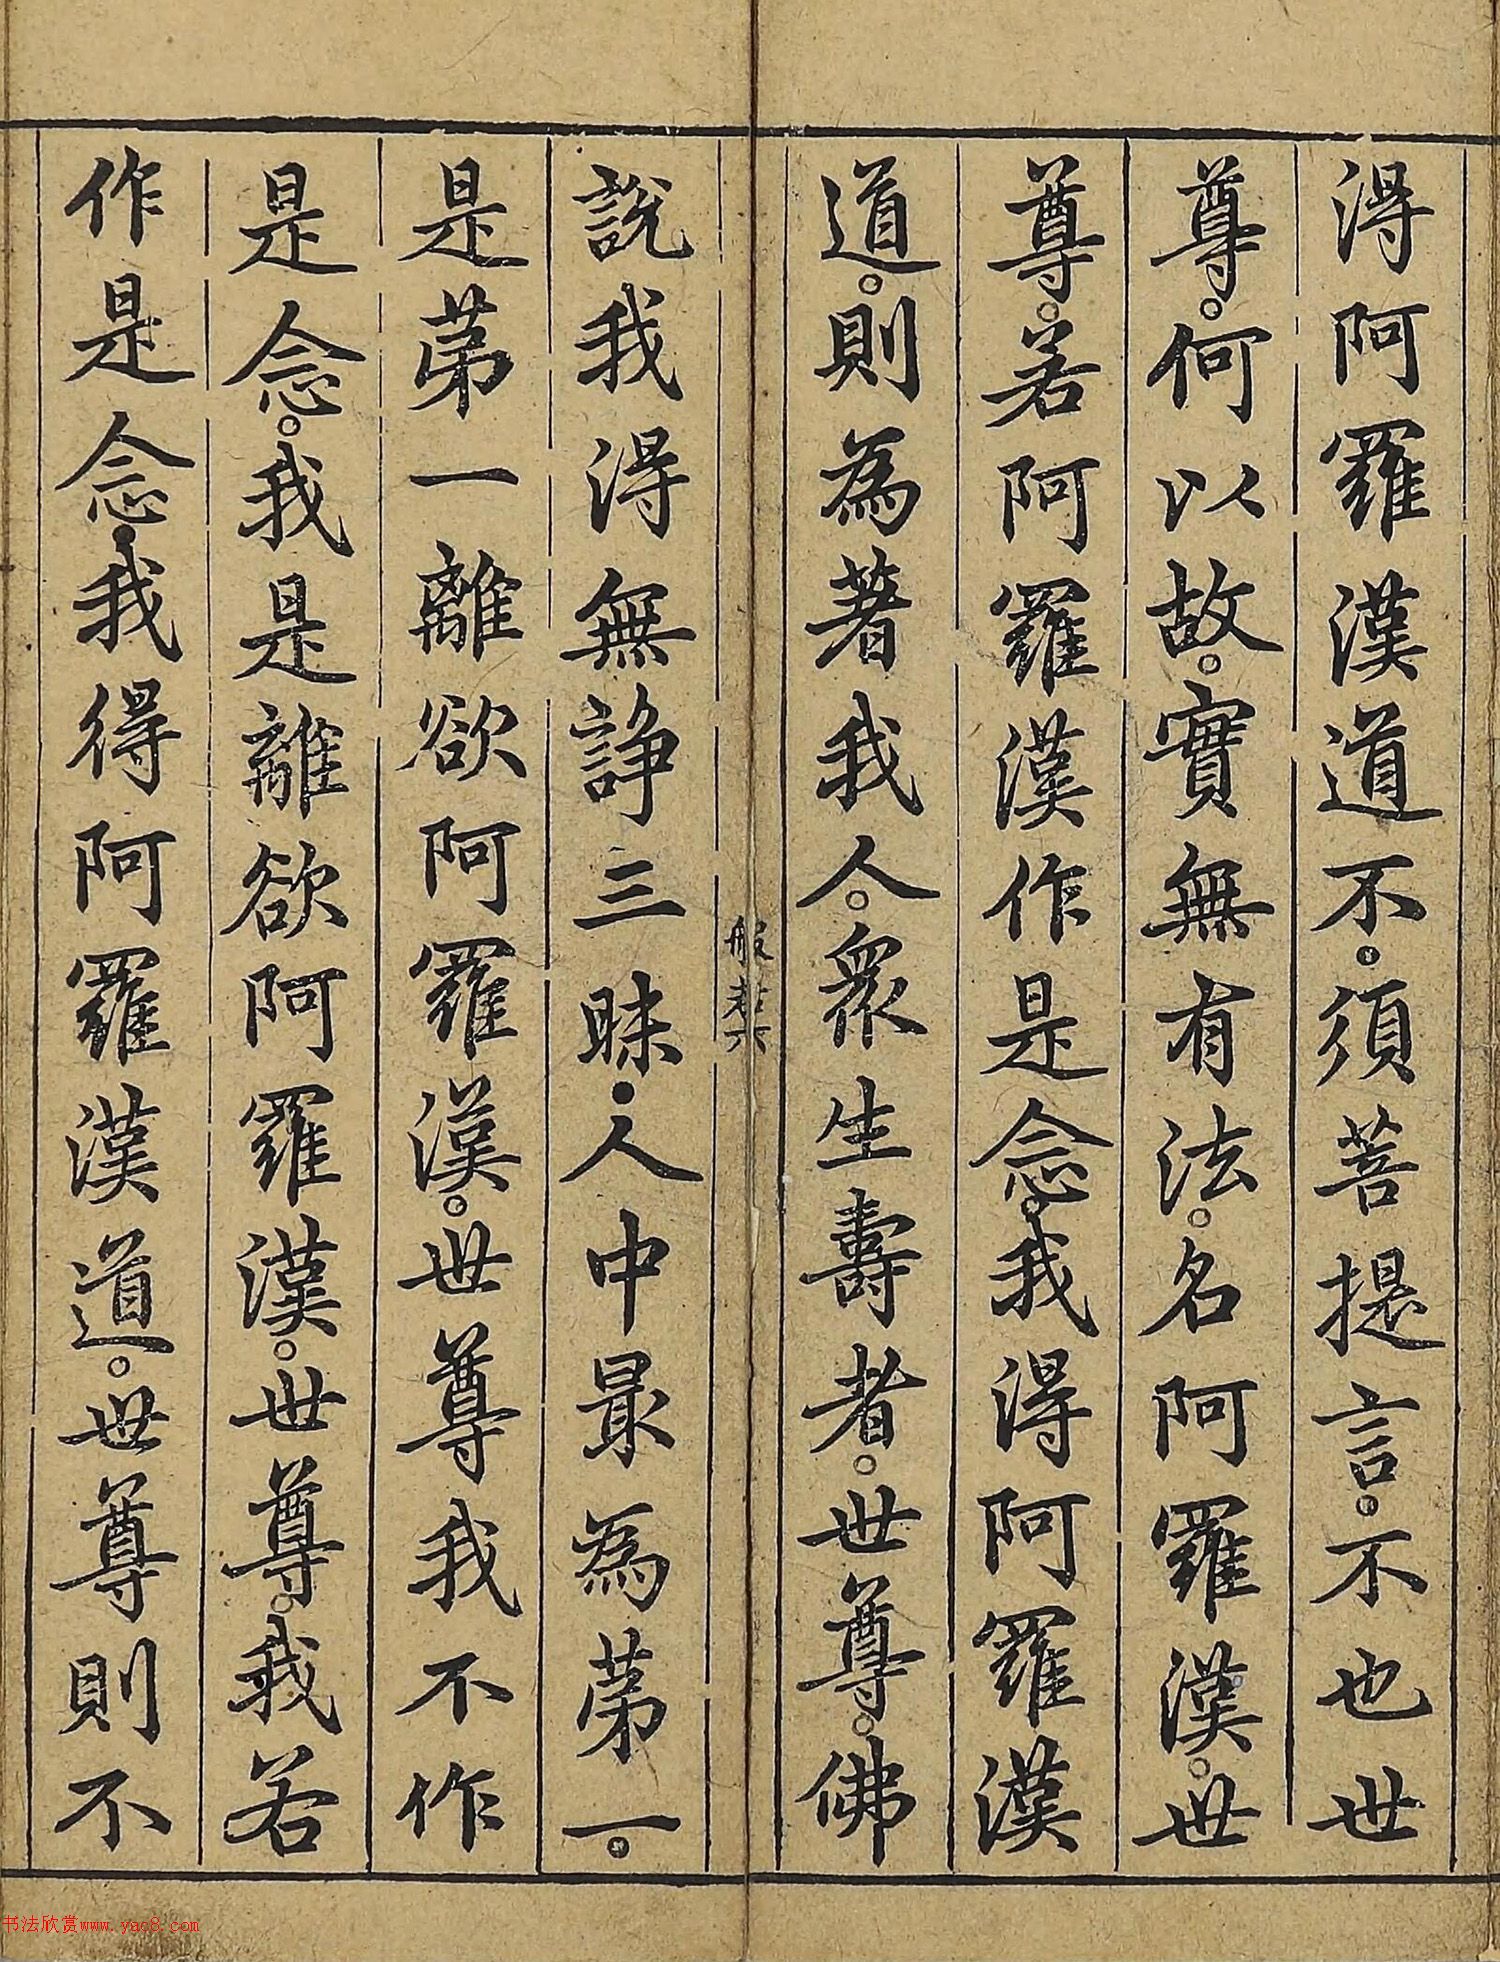 得阿羅漢道不。須菩提言。不也世
尊。何以故。實無有法。名阿羅漢。世
尊。若阿羅漢作是念。我得阿羅漢
道。則為著我人。眾生壽者。世尊。佛
般若六
說我得無諍三昧。人中最為第一。
是第一離欲阿羅漢。世尊我不作
是念。我是離欲阿羅漢。世尊。我若
作是念。我得阿羅漢道。世尊則不
书法欣赏www.yac8.com